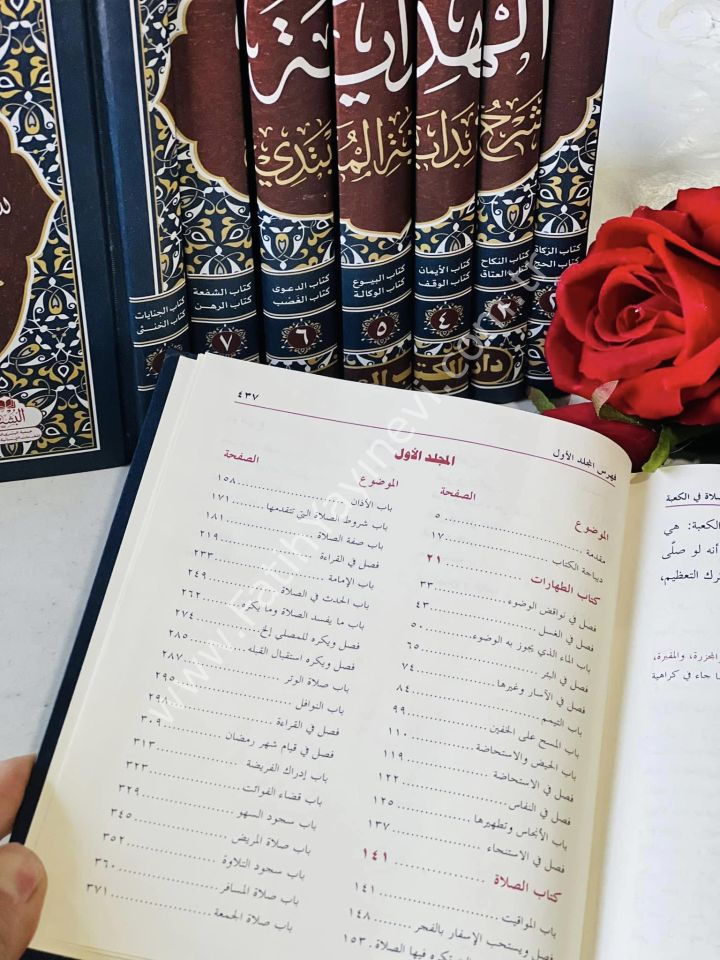 الهداية
شرح بداية المبتدي
كتاب الزكاة
كتاب الحج
كتاب النكاح
كتاب العتاق
٣
كتاب الأيمان
كتاب الوقف
٤
كتاب البيوع
كتاب الوكالة
٥
كتاب الدعوى
كتاب الغصب
٦
كتاب الشفعة
كتاب الرهن
٧
كتاب الجنايات
كتاب الخنثى
www.fatihyayinevi.com.tr
فهرس المجلد الأول
٤٣٧
المجلد الأول
الموضوع الصفحة
مقدمة ٥
ديباجة الكتاب ١٧
كتاب الطهارات ٢١
فصل في نواقض الوضوء ٣٣
فصل في الغسل ٤٣
باب الماء الذي يجوز به الوضوء ٥٠
فصل في البئر ٦٥
فصل في الآسار وغيرها ٧٤
باب التيمم ٨٤
باب المسح على الخفين ٩٩
باب الحيض والاستحاضة ١١٠
فصل في الاستحاضة ١١٩
فصل في النفاس ١٢٢
باب الأنجاس وتطهيرها ١٢٥
فصل في الاستنجاء ١٣٧
كتاب الصلاة ١٤١
باب المواقيت ١٤١
فصل ويستحب الإسفار بالفجر ١٤٨
تكره فيها الصلاة ١٥٣
الموضوع الصفحة
باب الأذان ١٥٨
باب شروط الصلاة التي تتقدمها ١٧١
باب صفة الصلاة ١٨١
فصل في القراءة ٢١٩
باب الإمامة ٢٣٣
باب الحدث في الصلاة ٢٤٩
باب ما يفسد الصلاة وما يكره ٢٦٢
فصل ويكره للمصلي إلخ ٢٧٤
فصل ويكره استقبال القبلة ٢٨٥
باب صلاة الوتر ٢٨٧
باب النوافل ٢٩٥
فصل في القراءة ٢٩٨
فصل في قيام شهر رمضان ٣٠٩
باب إدراك الفريضة ٣١٣
باب قضاء الفوائت ٣٢٣
باب سجود السهو ٣٢٩
باب صلاة المريض ٣٤٥
باب سجود التلاوة ٣٥٢
باب صلاة المسافر ٣٦٠
باب صلاة الجمعة ٣٧١
صلاة في الكعبة
الكعبة: هي
أنه لو صلّى
ترك التعظيم،
المجزرة، والمقبرة،
ما جاء في كراهية